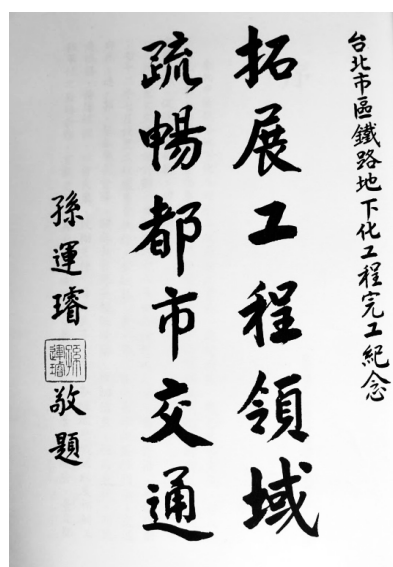 台北市區鐵路地下化工程完工紀念
拓展工程領域
疏暢都市交通
孫運璿敬題
孫運璿